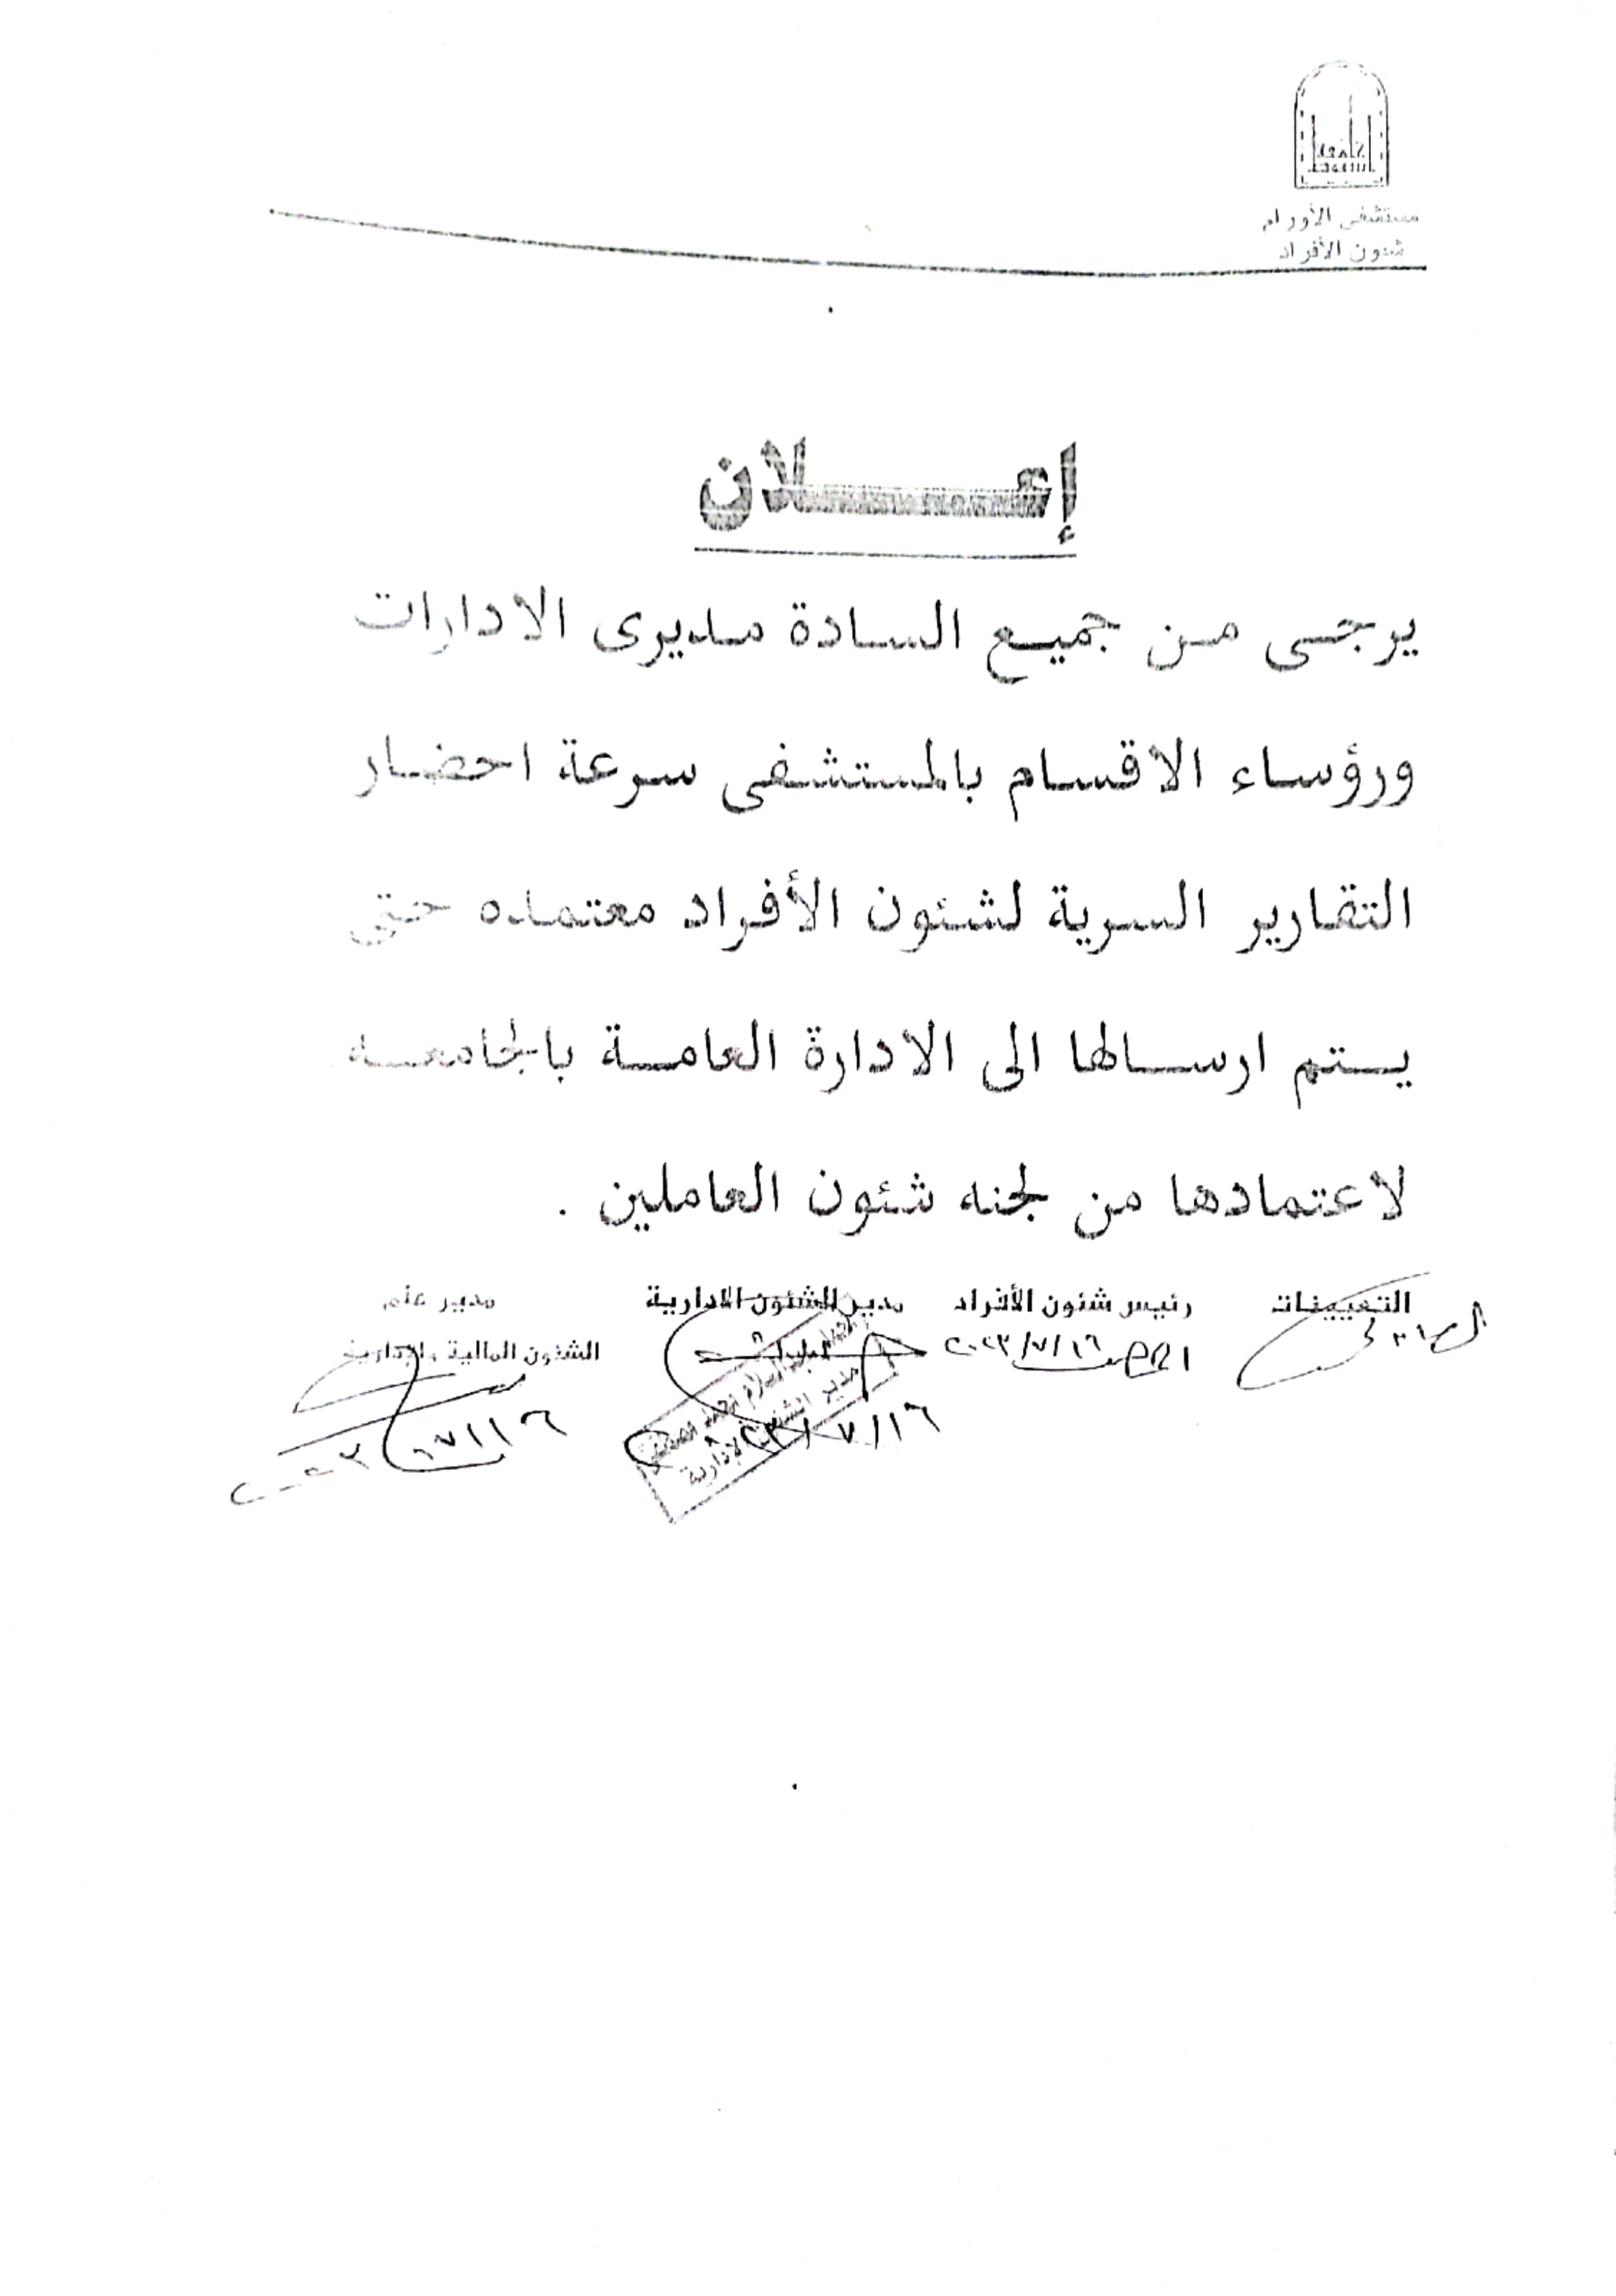 جامعة
أسيوط
مستشفى الأورام
شئون الأفراد
إعـــــلان
يرجى من جميع السادة مديرى الادارات
ورؤساء الاقسام بالمستشفى سرعة احضار
التقارير السرية لشئون الأفراد معتمده حتى
يستم ارسالها الى الادارة العامة بالجامعه
لاعتمادها من لجنه شئون العاملين .
التعيينات
رئيس شئون الأفراد
مدير الشئون الادارية
مدير عام
الشئون المالية والإدارية
٢٠٢٣/٧/١٦
٢٠٢٣/٧/١٦
٢٠٢٣/٧/١٦
مدير الشئون الإدارية